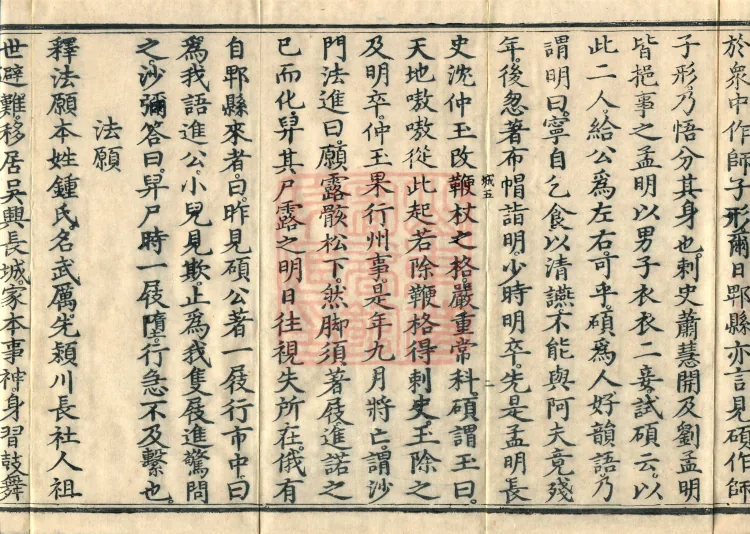 於衆中作師子形爾日郫縣亦言見碩作師
子形乃悟分其身也刺史蕭慧開及劉孟明
皆挹事之孟明以男子衣衣二妾試碩云以
此二人給公爲左右可乎碩爲人好韻語乃
謂明曰寧自乞食以清讌不能與阿夫竟殘
年後忽著布帽詣明少時明卒先是孟明長
城五
史沈仲玉改鞭杖之格嚴重常科碩謂玉曰
天地嗷嗷從此起若除鞭格得刺史玉除之
及明卒仲玉果行州事是年九月將亡謂沙
門法進曰願露骸松下然脚須著屐進諾之
已而化舁其尸露之明日往視失所在俄有
自郫縣來者曰昨見碩公著一屐行市中曰
爲我語進公小兒見欺止爲我隻屐進驚問
之沙彌答曰舁尸時一屐墮行急不及繫也
法願
釋法願本姓鍾氏名武厲先潁川長社人祖
世避難移居吳興長城家本事神身習鼓舞